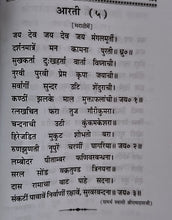 आरती (५)
जय देव जय देव जय मंगलमूर्ती ।
दर्शनमात्रें मन कामना पुरती ॥ ध्रु० ॥
सुखकर्ता दुःखहर्ता वार्ता विघ्नाची ।
नुरवी पुरवी प्रेम कृपा जयाची ।
सर्वांगीं सुन्दर उटि शेंदुराची ।
कण्ठीं झळके माळ मुक्ताफळांची ॥ जय० १ ॥
रत्नखचित फरा तुज गौरीकुमरा ।
चन्दनाची उटी कुंकुमकेशरा ।
हिरेजडित मुकुट शोभतो बरा ।
रुणझुणती नूपुरें चरणीं घागरिया ॥ जय० २ ॥
लम्बोदर पीताम्बर फणिवरबन्धना ।
सरल सोंड वक्रतुण्ड त्रिनयना ।
दास रामाचा वाट पाहे सदना ।
संकटीं पावावें निर्वाणीं रक्षावें, सुरवरवन्दना ॥ जय० ३ ॥